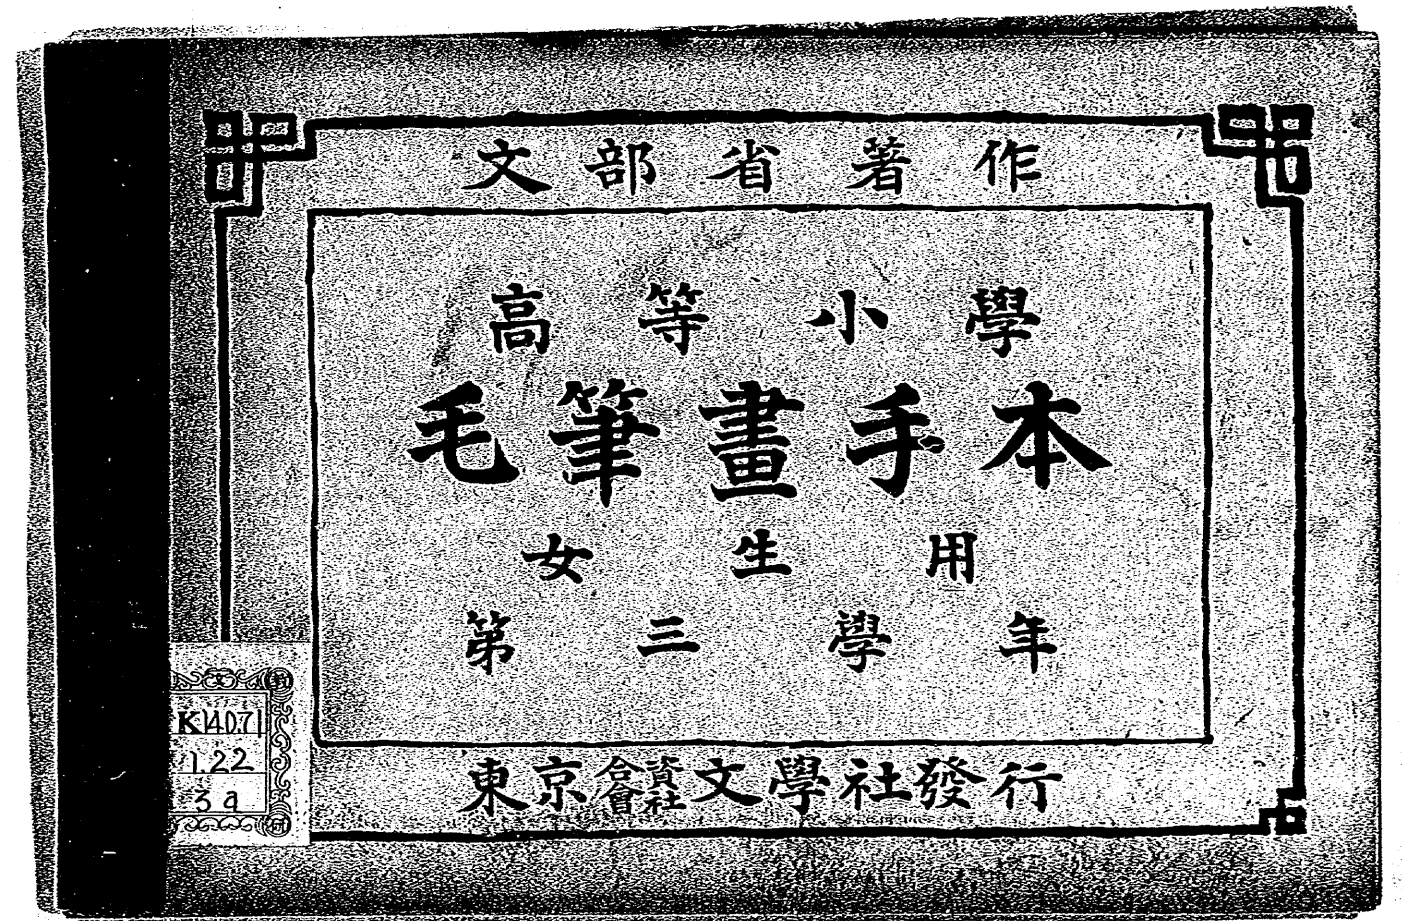 文部省著作
高等小學
毛筆畫手本
女生用
第三學年
東京合資會社文學社發行
K140.71
1.22
3a